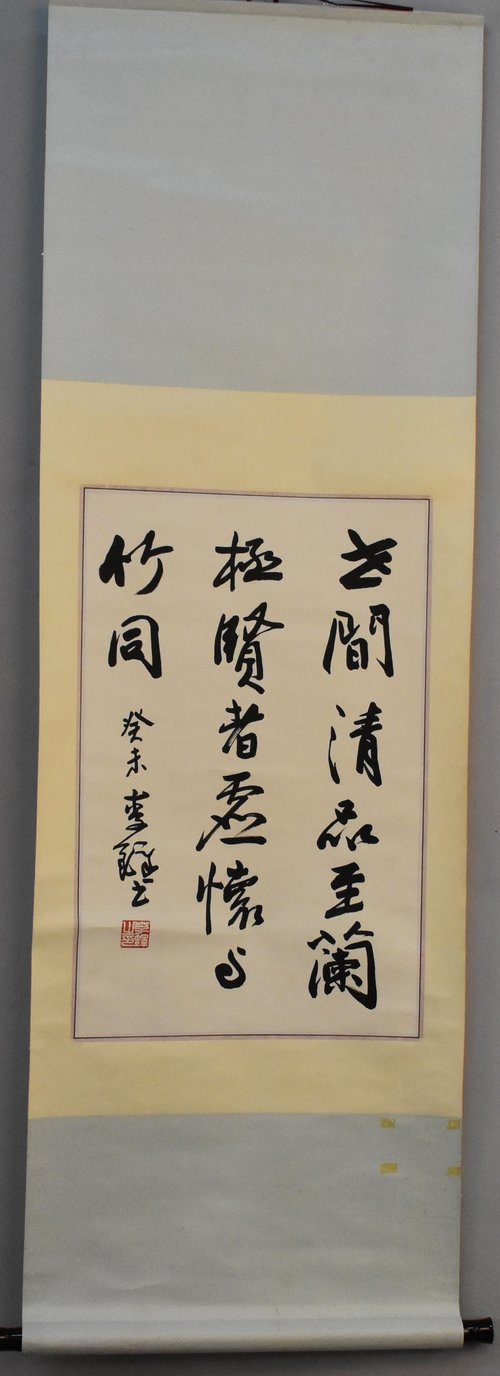 世間清品至蘭
極賢者虛懷与
竹同
癸未李鐸書